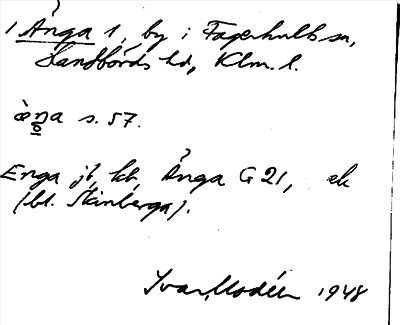 1 Änga 1, by i Fagerhults sn,
Handbörds hd, Klm. l.
s. 57.
Enga jb, kb, Änga G 21, ek
(bl. Skinberga).
Ivar Modéer 1948